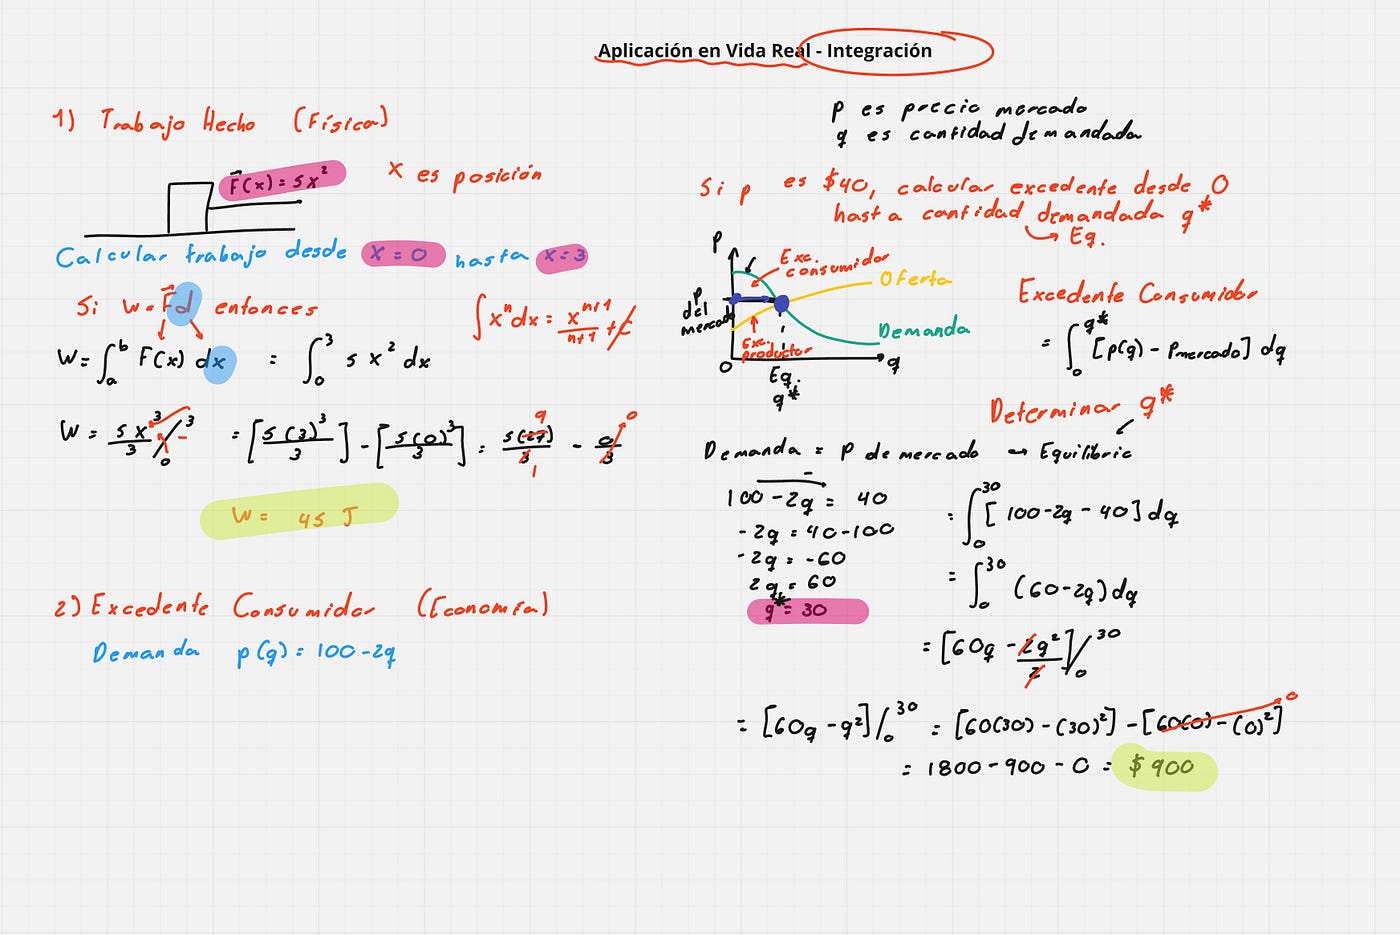 Aplicación en Vida Real - Integración
1) Trabajo Hecho (Física)
F(x) = 5x²
x es posición
Calcular trabajo desde x = 0 hasta x = 3
Si W = Fd entonces
∫xⁿdx = xⁿ⁺¹/n+1 + C
W = ∫ₐᵇ F(x) dx = ∫₀³ 5x² dx
W = 5x³/3 |₀³ = [5(3)³/3] - [5(0)³/3] = 5(27)/3 - 0/3
9
1
0
W = 45 J
2) Excedente Consumidor (Economía)
Demanda p(q) = 100-2q
p es precio mercado
q es cantidad demandada
Si p es $40, calcular excedente desde 0
hasta cantidad demandada q*
Eq.
P
Exc. consumidor
Oferta
P del mercado
Demanda
Exc. productor
0
q
Eq.
q*
Excedente Consumidor
= ∫₀^q* [p(q) - Pmercado] dq
Determinar q*
Demanda = P de mercado → Equilibrio
100 - 2q = 40
-2q = 40-100
-2q = -60
2q = 60
q* = 30
= ∫₀³⁰ [100-2q - 40] dq
= ∫₀³⁰ (60-2q) dq
= [60q - 2q²/2] |₀³⁰
= [60q - q²] |₀³⁰ = [60(30) - (30)²] - [60(0) - (0)²]
0
= 1800 - 900 - 0 = $900